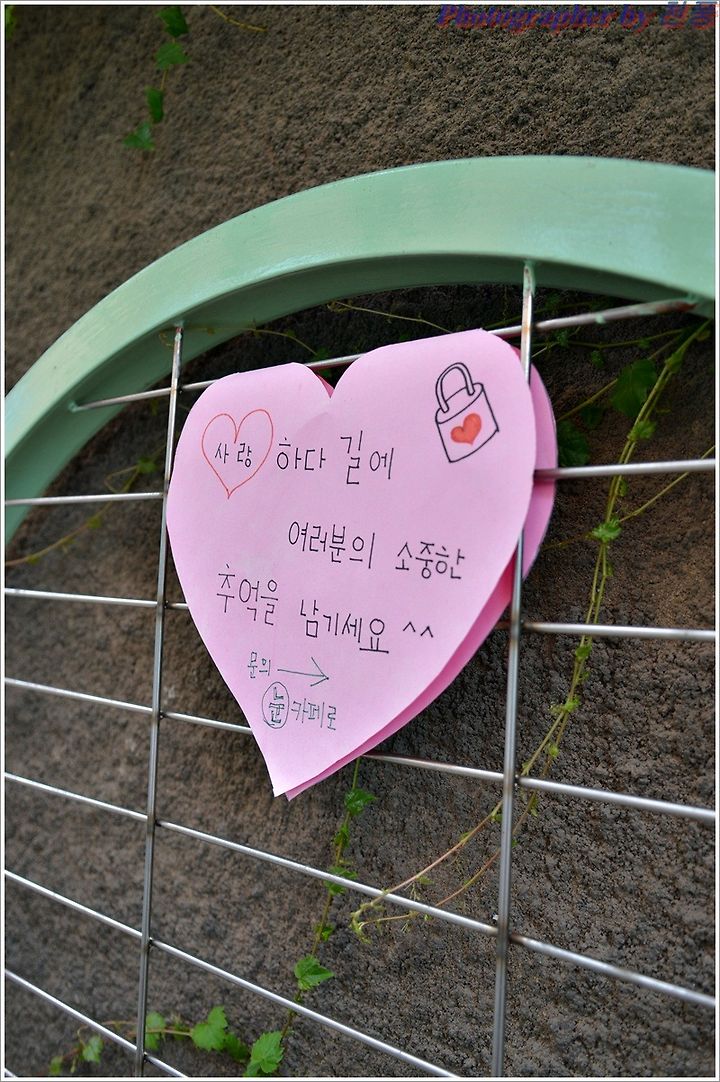 Photographer by
사랑 하다 길에
여러분의 소중한
추억을 남기세요 ^^
문의 →
눈 카페로